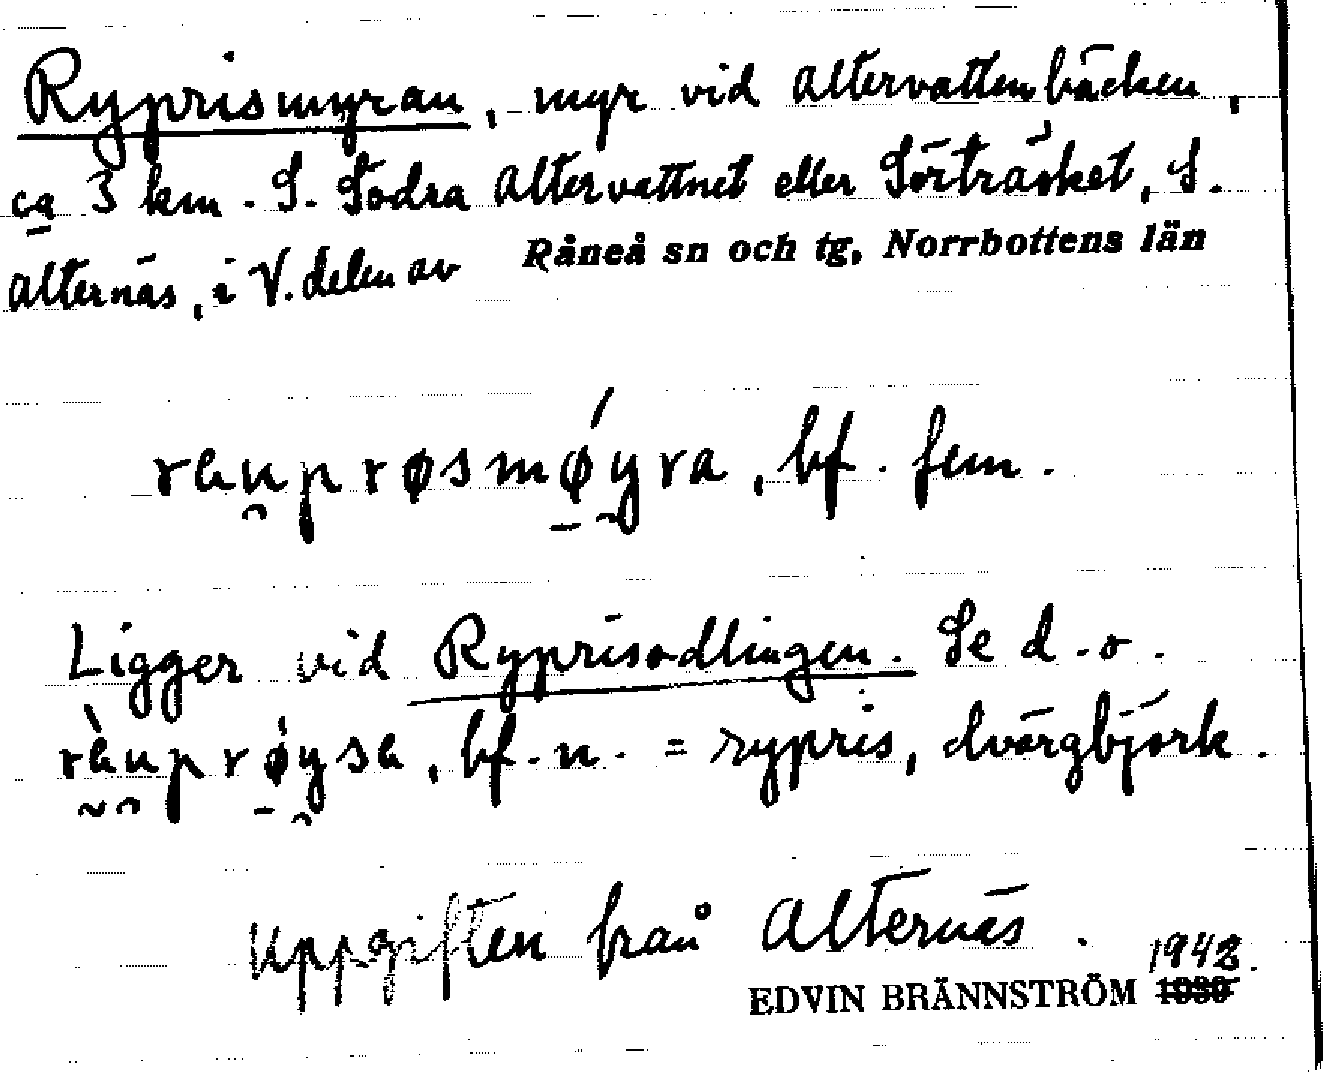 Ryprismyran, myr vid Altervattenbäcken,
ca 3 km. S. Södra Altervattnet eller Sörträsket, S.
Alternäs, i V. delen av Råneå sn och tg, Norrbottens län
rau̯prøsmǿ̠y̯ra, bf. fem.
Ligger vid Ryprisodlingen. Se d.o.
bf. n. = rypris, dvärgbjörk.
Uppgiften från Alternäs.
EDVIN BRÄNNSTRÖM 1942.